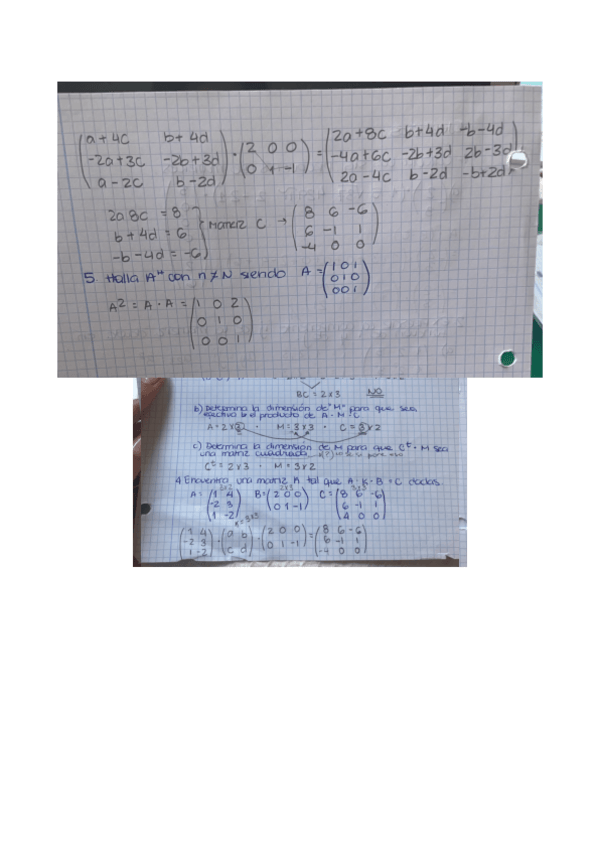 (a+4c b+4d) · (2 0 0) = (2a+8c b+4d -b-4d)
(-2a+3c -2b+3d) (0 1 -1) (-4a+6c -2b+3d 2b-3d)
(a-2c b-2d) (2a-4c b-2d -b+2d)
2a 8c = 8
b+4d = 6 } Matriz C → (8 6 -6)
-b-4d = -6 (6 -1 1)
(-4 0 0)
5. Halla Aⁿ con n≠N siendo A = (1 0 1)
(0 1 0)
(0 0 1)
A² = A · A = (1 0 2)
(0 1 0)
(0 0 1)
BC = 2x3 NO
b) Determina la dimensión de "M" para que sea
efectivo el producto de A · M · C
A = 2x3 · M = 3x3 · C = 3x2
c) Determina la dimensión de M para que Cᵗ · M sea
una matriz cuadrada
Cᵗ = 2x3 · M = 3x2
4 Encuentra una matriz K tal que A · K · B = C dadas
3x2 2x3 3x3
A = (1 4) B = (2 0 0) C = (8 6 -6)
(-2 3) (0 1 -1) (6 -1 1)
(1 -2) (4 0 0)
(1 4) · (a b) · (2 0 0) = (8 6 -6)
(-2 3) (c d) (0 1 -1) (6 -1 1)
(1 -2) (-4 0 0)